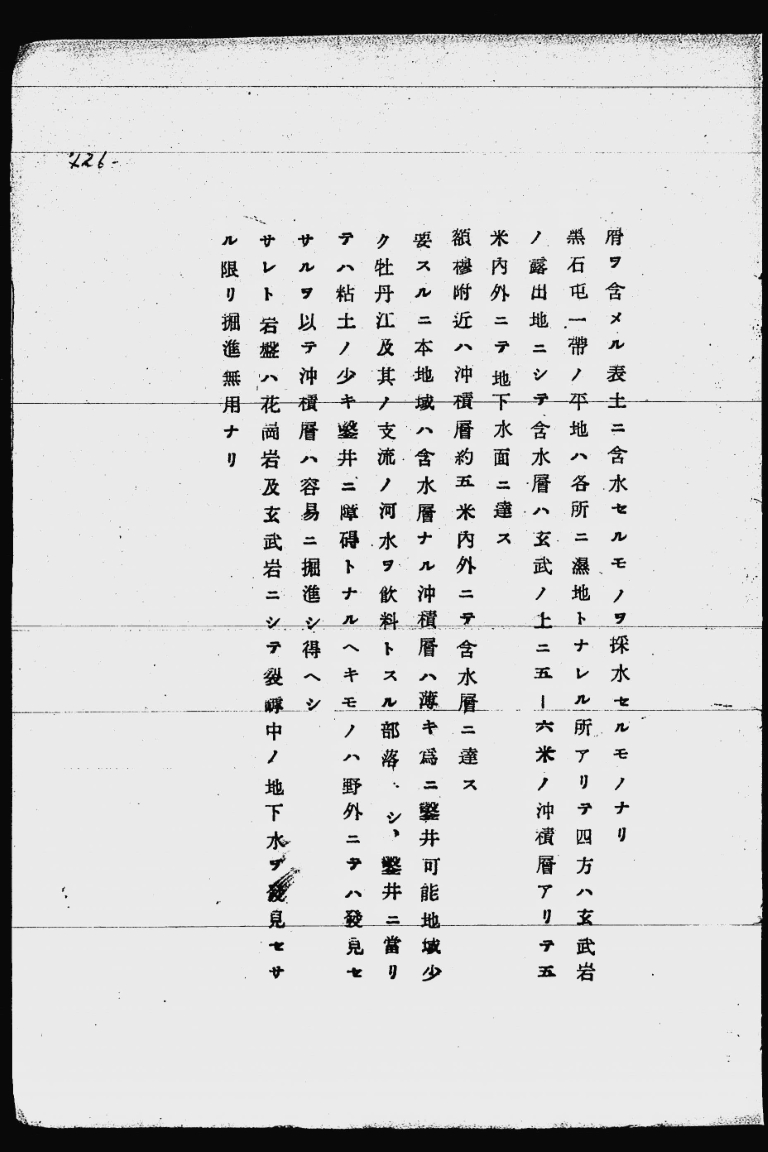 屑ヲ含メル表土ニ含水セルモノヲ採水セルモノナリ
黒石屯一帶ノ平地ハ各所ニ濕地トナレル所アリテ四方ハ玄武岩
ノ露出地ニシテ含水層ハ玄武ノ上ニ五ー六米ノ沖積層アリテ五
米內外ニテ地下水面ニ達ス
額穆附近ハ沖積層約五米內外ニテ含水層ニ達ス
要スルニ本地域ハ含水層ナル沖積層ハ薄キ爲ニ鑿井可能地域少
ク牡丹江及其ノ支流ノ河水ヲ飮料トスル部落シ、鑿井ニ當リ
テハ粘土ノ少キ鑿井ニ障碍トナルヘキモノハ野外ニテハ發見セ
サルヲ以テ沖積層ハ容易ニ掘進シ得ヘシ
サレト岩盤ハ花崗岩及玄武岩ニシテ裂罅中ノ地下水ヲ發見セサ
ル限リ掘進無用ナリ